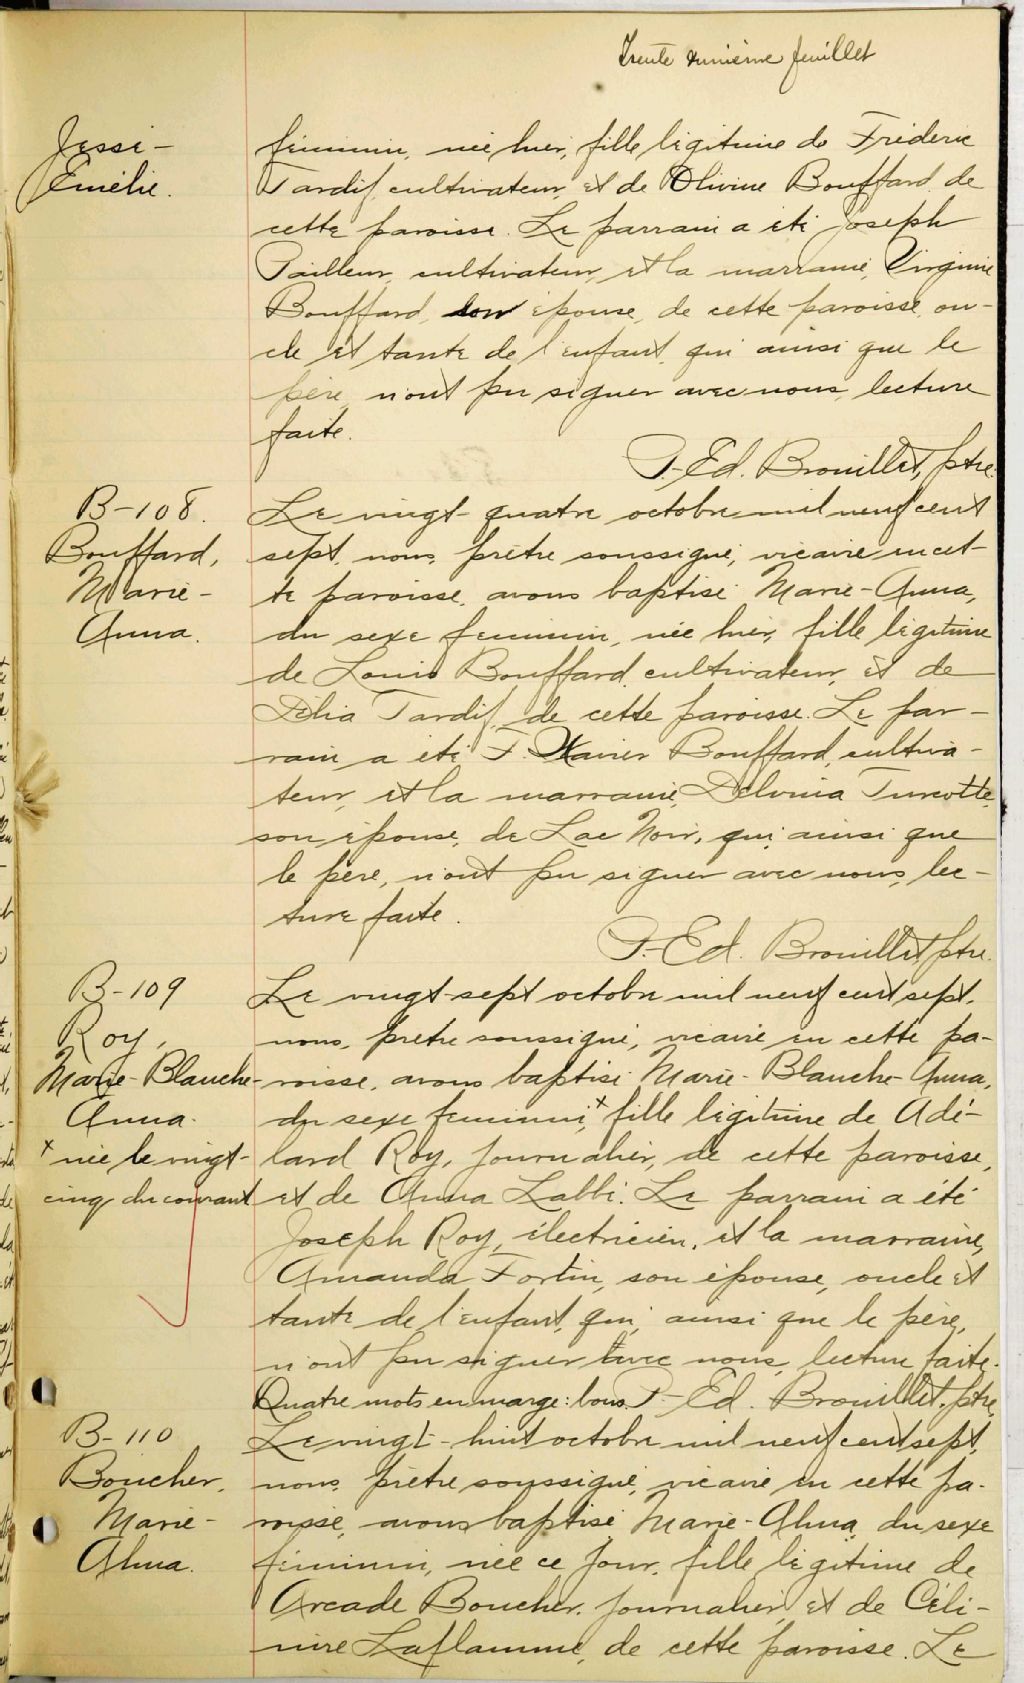 Trente unième feuillet
Jessé-
Emélie.
féminin, née hier, fille légitime de Fréderic
Tardif, cultivateur, et de Olivine Bouffard de
cette paroisse. Le parrain a été Joseph
Pailleur, cultivateur, et la marraine, Virginie
Bouffard, son épouse, de cette paroisse, on-
cle et tante de l'enfant, qui ainsi que le
père, n'ont pu signer avec nous, lecture
faite.
P.-Ed. Brouillet, ptre.
B-108.
Bouffard,
Marie-
Anna.
Le vingt-quatre octobre mil neuf cent
sept, nous, prêtre soussigné, vicaire en cet-
te paroisse, avons baptisé Marie-Anna,
du sexe féminin, née hier, fille légitime
de Louis Bouffard, cultivateur, et de
Délia Tardif, de cette paroisse. Le par-
rain a été F. Xavier Bouffard, cultiva-
teur, et la marraine, Delvina Turcotte,
son épouse, de Lac Noir, qui ainsi que
le père, n'ont pu signer avec nous, lec-
ture faite.
P.-Ed. Brouillet, ptre.
B-109
Roy,
Marie-Blanche-
Anna.
x née le vingt-
cinq du courant
Le vingt-sept octobre mil neuf cent sept,
nous, prêtre soussigné, vicaire en cette pa-
roisse, avons baptisé Marie-Blanche-Anna,
du sexe féminin,x fille légitime de Adé-
lard Roy, journalier, de cette paroisse,
et de Anna Labbé. Le parrain a été
Joseph Roy, électricien, et la marraine,
Amanda Fortin, son épouse, oncle et
tante de l'enfant, qui, ainsi que le père,
n'ont pu signer avec nous, lecture faite.
Quatre mots en marge: bons. P.-Ed. Brouillet, ptre.
B-110
Boucher,
Marie-
Alma.
Le vingt-huit octobre mil neuf cent sept,
nous, prêtre soussigné, vicaire en cette pa-
roisse, avons baptisé Marie-Alma, du sexe
féminin, née ce jour, fille légitime de
Arcade Boucher, journalier, et de Céli-
nire Laflamme, de cette paroisse. Le